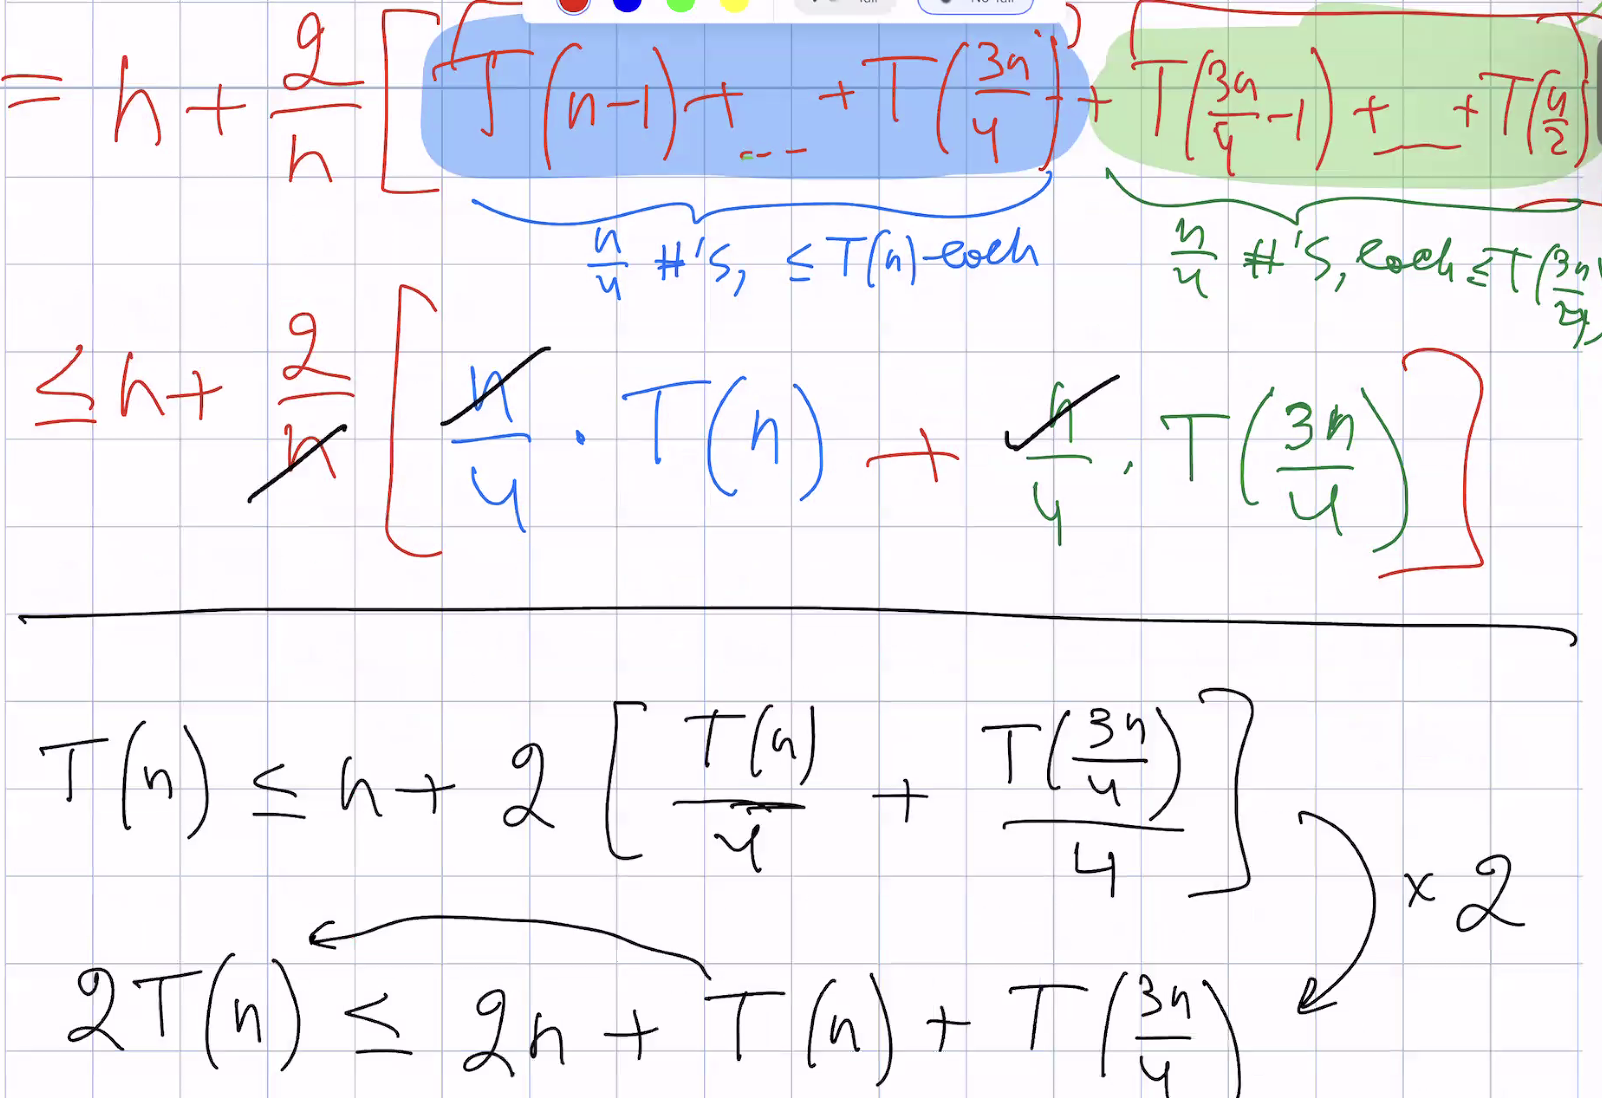 = n + 2/n [ T(n-1) + --- + T(3n/4) + T(3n/4 -1) + __ + T(n/2)
n/4 #'s, ≤ T(n) each n/4 #'s, each ≤ T(3n/4)
≤ n + 2/n [ n/4 · T(n) + n/4 · T(3n/4) ]
T(n) ≤ n + 2 [ T(n)/4 + T(3n/4)/4 ]
× 2
2T(n) ≤ 2n + T(n) + T(3n/4)